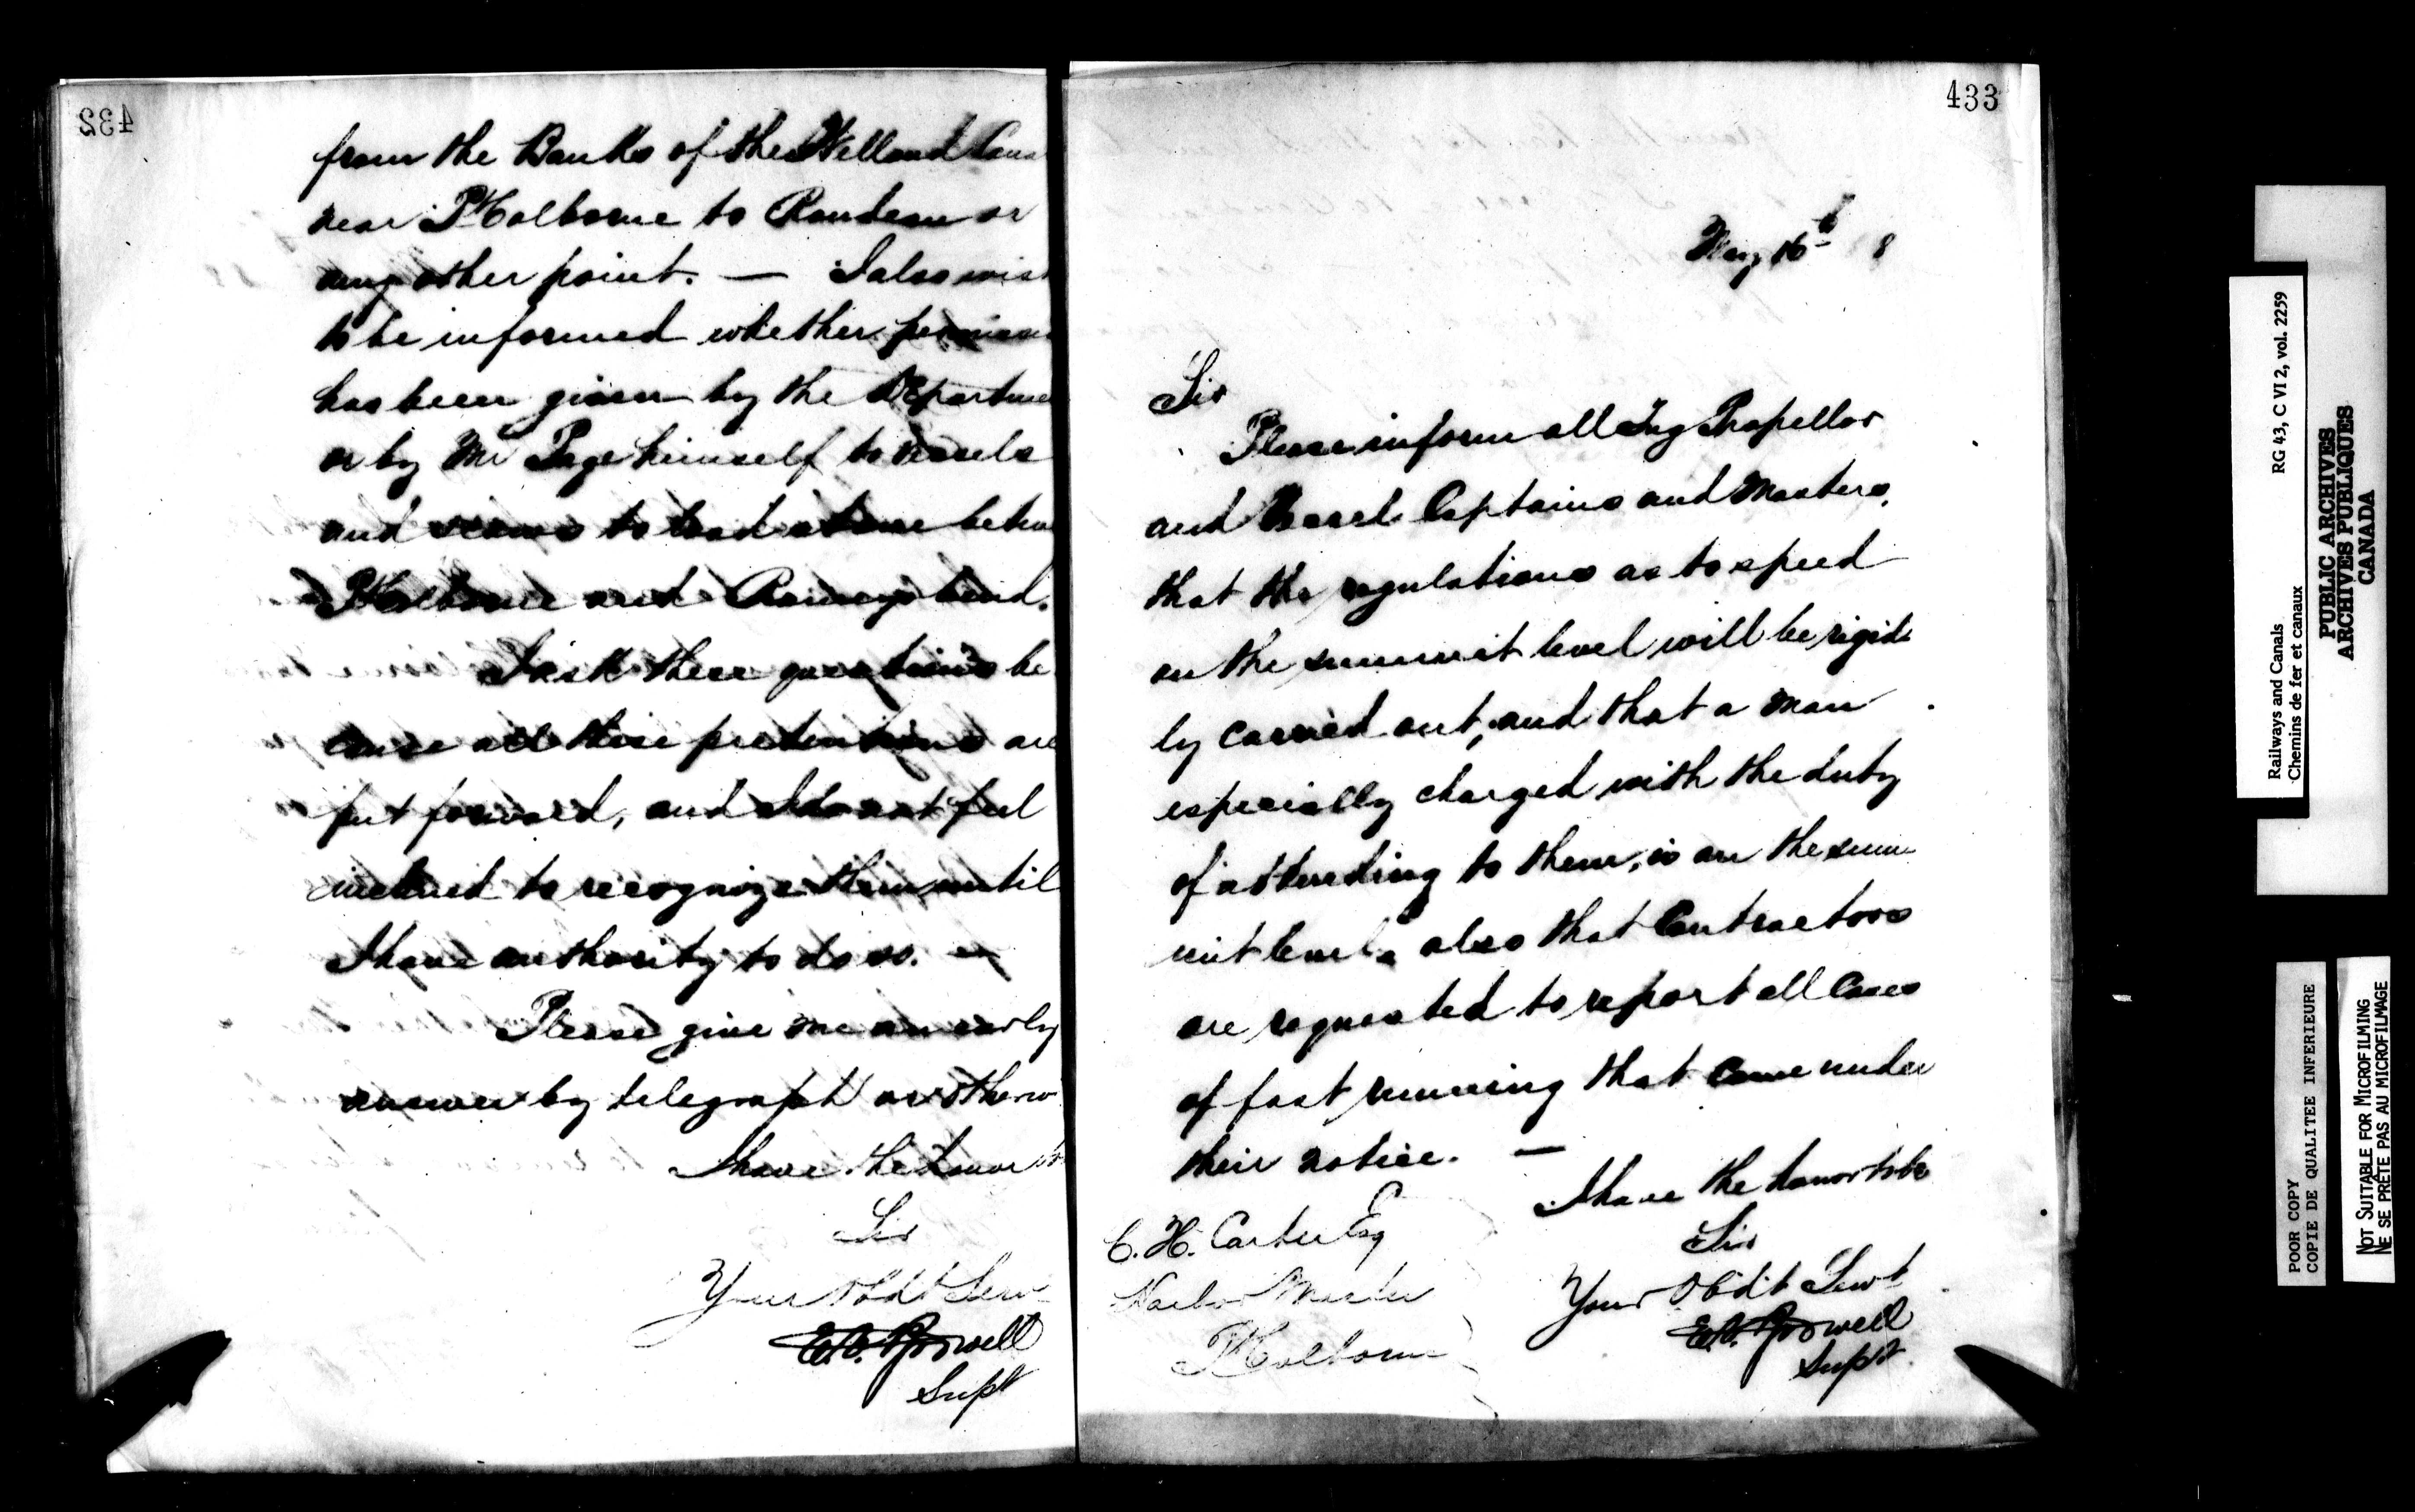 432
from the Banks of the Welland Cana
near Pt Colborne to Rondeau or
any other point. — I also wis
to be informed whether
has been given by the Departme
or by Mr Page himself to vessels
and scows to load stone betw
Pt Colborne and Rameys bend.
I ask these questions be
cause all these pretentions are
put forward, and I do not feel
inclined to recognize them until
I have authority to do so. —
Please give me an early
answer by telegraph or otherw
I have the honor to
Sir
Your Obdt Serv
Supt
433
May 16th 8
Sir
Please inform all Tug Propellor
and Vessel Captains and Masters,
that the regulations as to speed
on the summit level will be rigid
ly carried out, and that a man
especially charged with the duty
of attending to them, is on the sum
mit level, also that Contractors
are requested to report all Cases
of fast running that come under
their notice. —
I have the honor to be
Sir
Your Obdt Servt
Supt.
C. H. Carter Esq
Harbor Master
Pt Colborne
Railways and Canals
Chemins de fer et canaux
RG 43, C VI 2, vol. 2259
PUBLIC ARCHIVES
ARCHIVES PUBLIQUES
CANADA
POOR COPY
COPIE DE QUALITEE INFERIEURE
NOT SUITABLE FOR MICROFILMING
NE SE PRÊTE PAS AU MICROFILMAGE